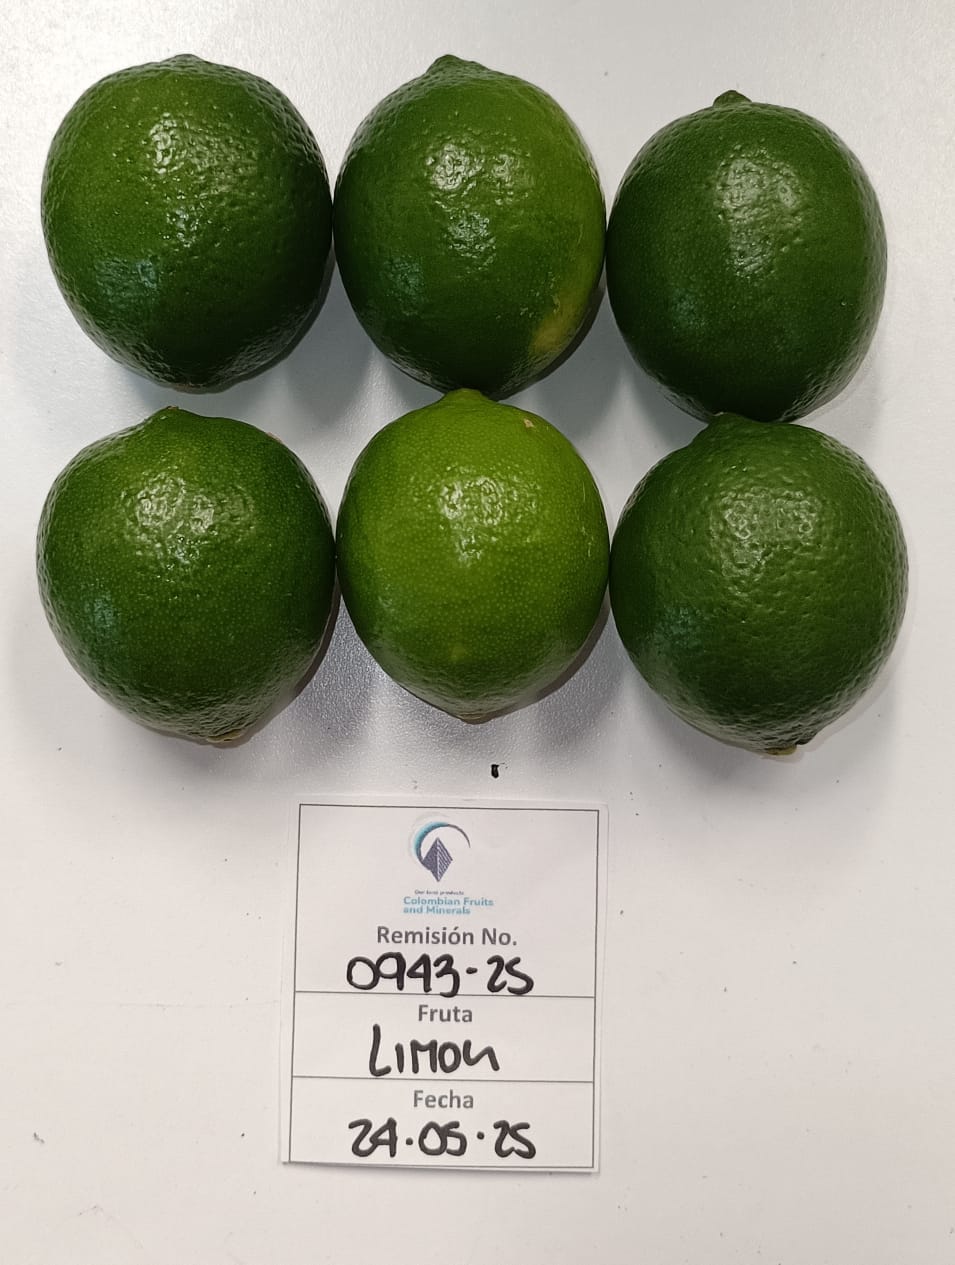 Our best products
Colombian Fruits
and Minerals
Remisión No.
0943-25
Fruta
LIMON
Fecha
24.05.25